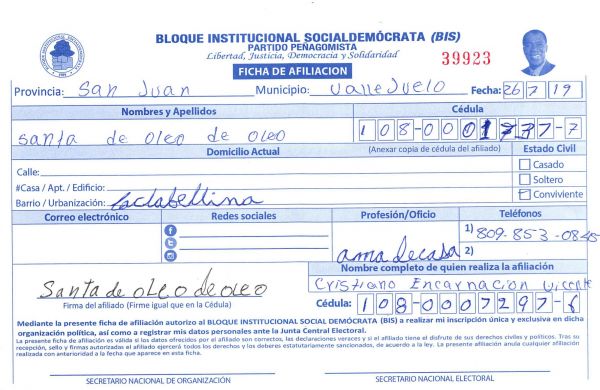 BLOQUE INSTITUCIONAL SOCIALDEMÓCRATA (BIS)
PARTIDO PEÑAGOMISTA
Libertad, Justicia, Democracia y Solidaridad
39923
FICHA DE AFILIACION
Provincia: San Juan Municipio: Valle Juelo Fecha: 26/7/19
Nombres y Apellidos Cédula
santa de oleo de oleo 108-0001737-7
Domicilio Actual (Anexar copia de cédula del afiliado) Estado Civil
Calle: Casado
#Casa / Apt. / Edificio: Soltero
Barrio / Urbanización: Conviviente
Correo electrónico Redes sociales Profesión/Oficio Teléfonos
1) 809-853-0845
ama de casa 2)
Nombre completo de quien realiza la afiliación
Santa de oleo de oleo Cristiano Encarnacion Vicente
Firma del afiliado (Firme igual que en la Cédula) Cédula: 108-0007297-6
Mediante la presente ficha de afiliación autorizo al BLOQUE INSTITUCIONAL SOCIAL DEMÓCRATA (BIS) a realizar mi inscripción única y exclusiva en dicha
organización política, así como a registrar mis datos personales ante la Junta Central Electoral.
La presente ficha de afiliación es válida si los datos ofrecidos por el afiliado son correctos, las declaraciones veraces y si el afiliado tiene el disfrute de sus derechos civiles y políticos. Tras su
recepción, sello y firmas autorizadas el afiliado ejercerá todos los derechos y los deberes estatutariamente sancionados, de acuerdo a la ley. La presente afiliación anula cualquier afiliación
realizada con anterioridad a la fecha que aparece en esta ficha.
SECRETARIO NACIONAL DE ORGANIZACIÓN SECRETARIO NACIONAL ELECTORAL